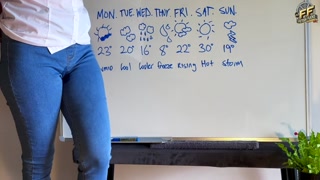 MON. TUE. WED. THUY. FRI. SAT. SUN.
23° 20° 16° 8° 22° 30° 19°
Cool Cooler Freeze Rising Hot storm
FF